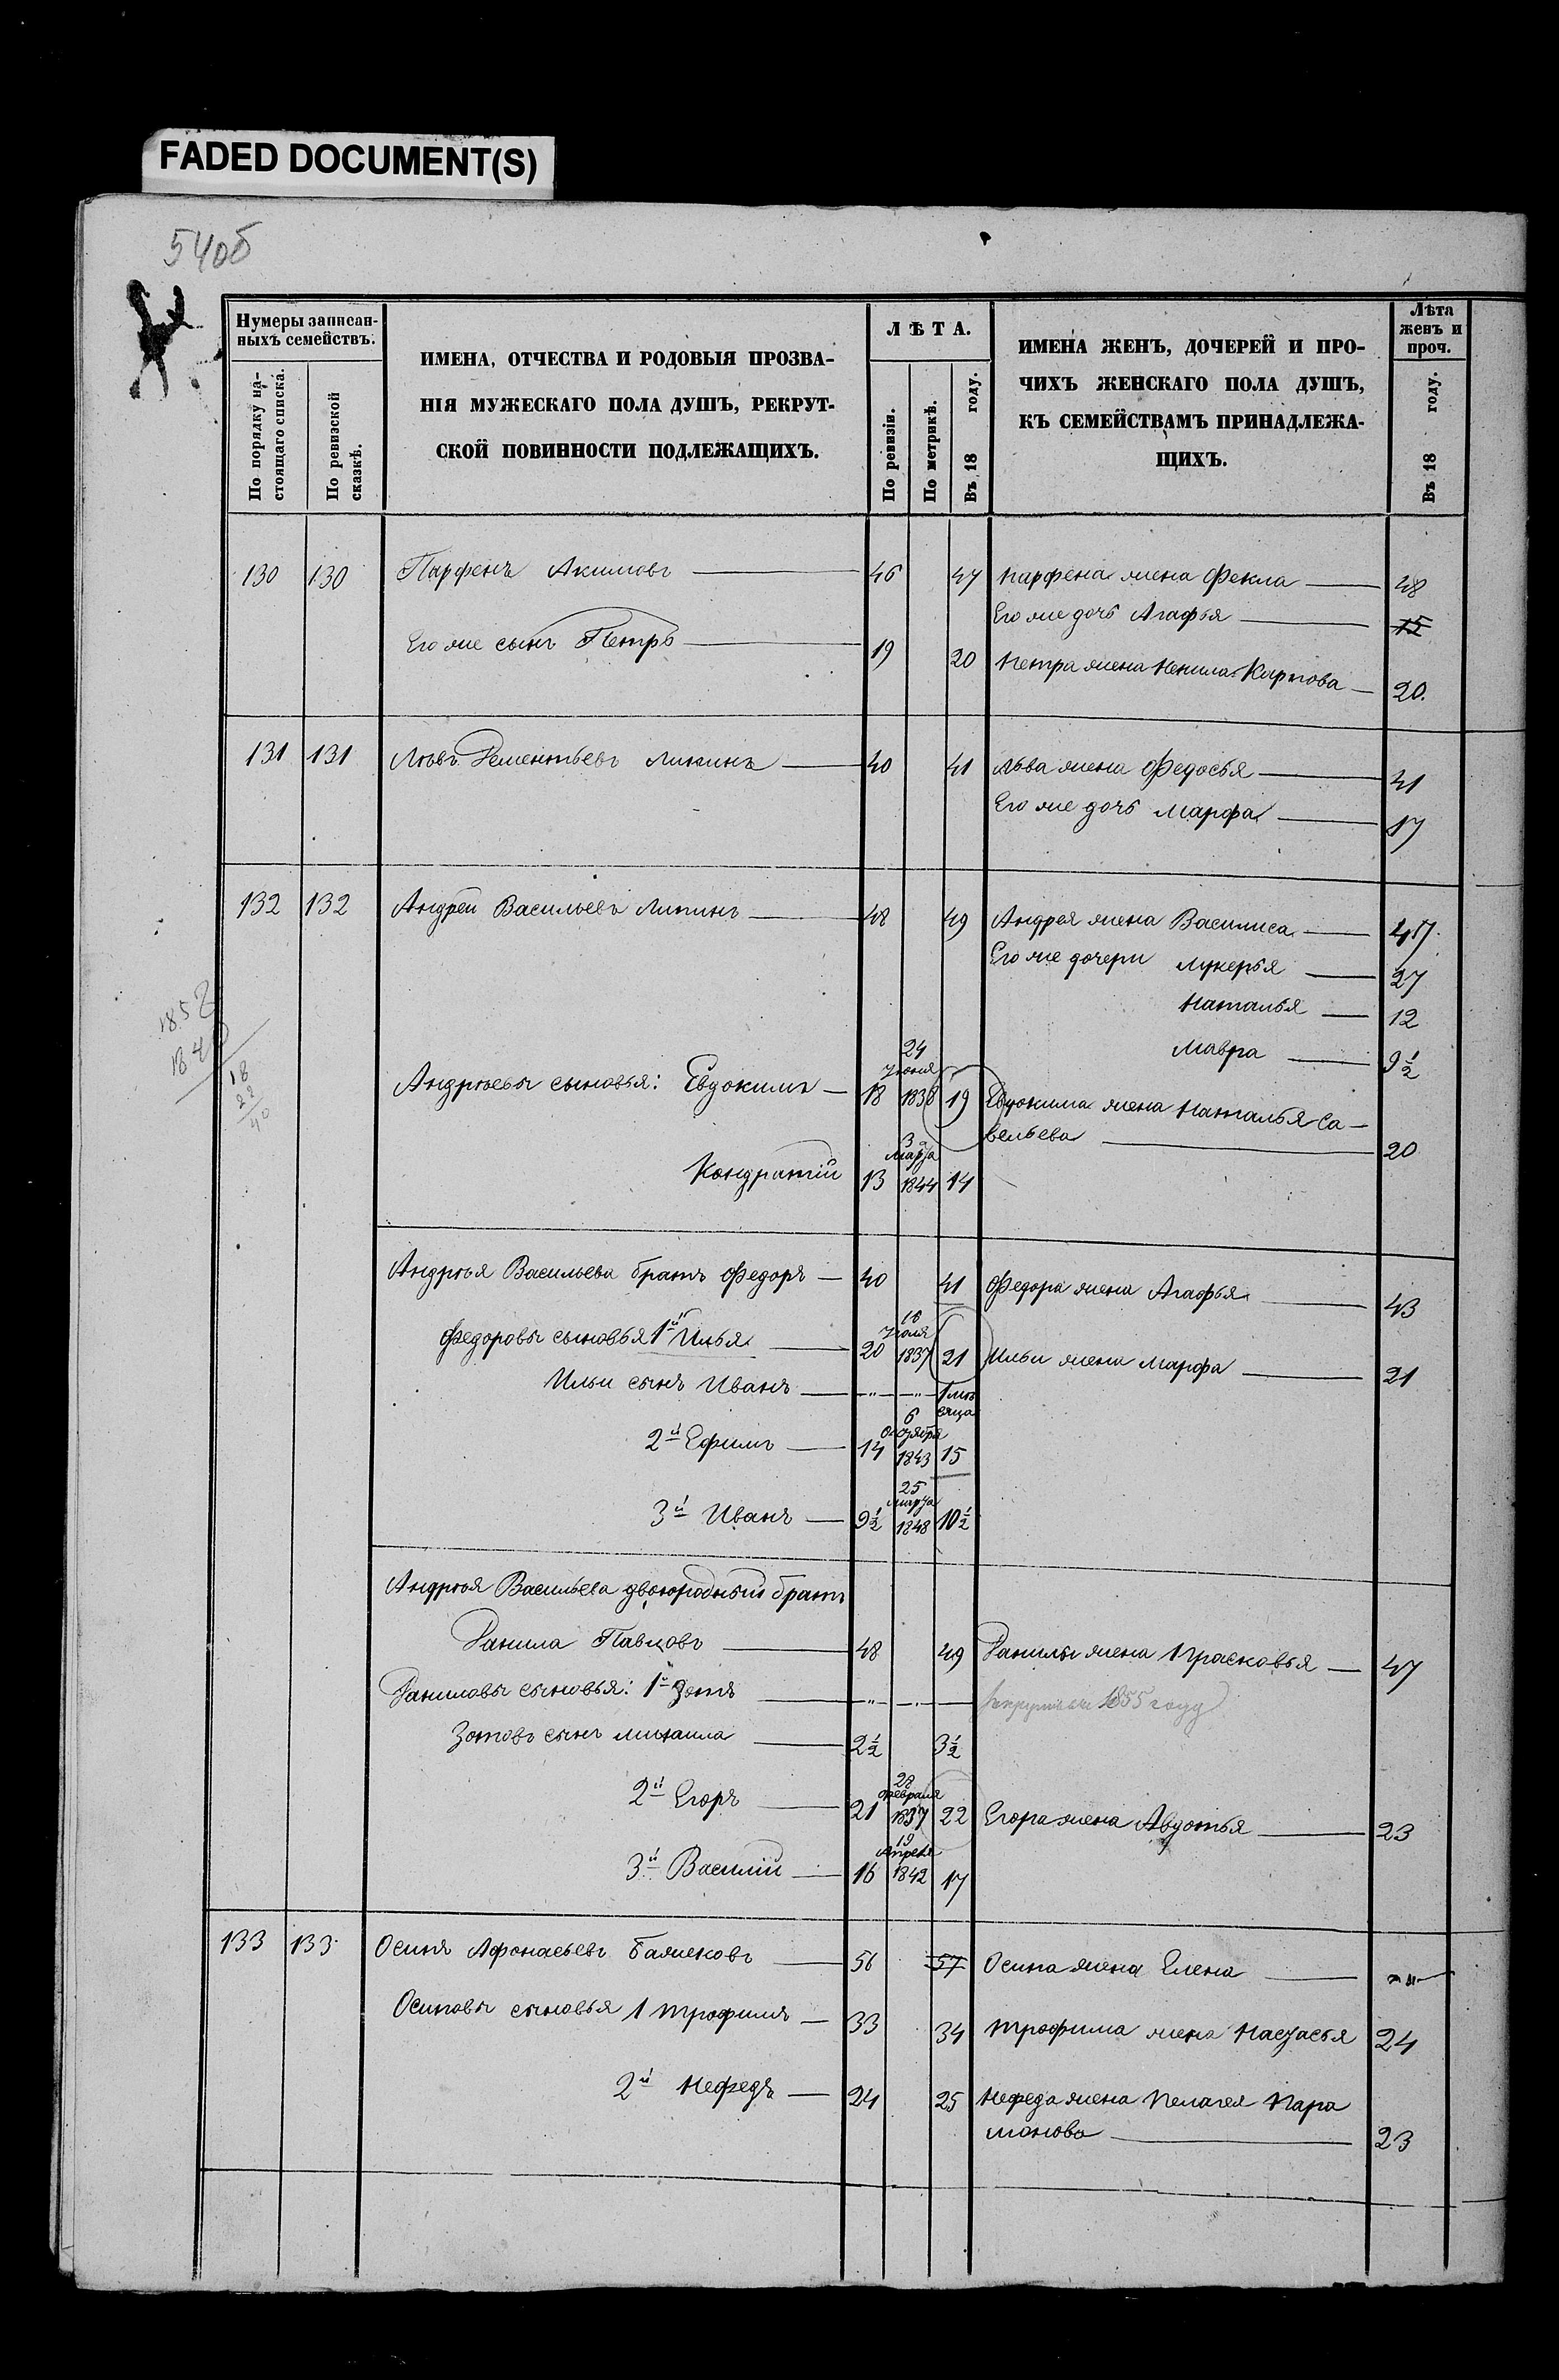 FADED DOCUMENT(S)
54об
Нумеры записан-
ныхъ семействъ.
По порядку на-
стоящаго списка.
По ревизской
сказкѣ.
ИМЕНА, ОТЧЕСТВА И РОДОВЫЯ ПРОЗВА-
НІЯ МУЖЕСКАГО ПОЛА ДУШЪ, РЕКРУТ-
СКОЙ ПОВИННОСТИ ПОДЛЕЖАЩИХЪ.
ЛѢТА.
По ревизіи.
По метрикѣ.
Въ 18 году.
ИМЕНА ЖЕНЪ, ДОЧЕРЕЙ И ПРО-
ЧИХЪ ЖЕНСКАГО ПОЛА ДУШЪ,
КЪ СЕМЕЙСТВАМЪ ПРИНАДЛЕЖА-
ЩИХЪ.
Лѣта
женъ и
проч.
Въ 18 году.
130 130 Парфенъ Акимовъ 46 47 Парфена жена Фекла 48
Его же дочь Агафья 15
Его же сынъ Петръ 19 20 Петра жена Ненила Карпова 20.
131 131 Левъ Дементьевъ 40 41 Льва жена Федосья 41
Его же дочь Марфа 17
132 132 Андрей Васильевъ 48 49 Андрея жена Василиса 47.
Его же дочери Лукерья 27
Наталья 12
Мавра 9½
1858
18
22
40
24
Июня
Андреевы сыновья: Евдокимъ 18 1838 19 Евдокима жена Наталья Са-
вельева 20
3
Марта
Кондратій 13 1844 14
Андрея Васильева братъ Федоръ 40 41 Федора жена Агафья 43
16
Июля
Федоровы сыновья 1й Илья 20 1837 21 Ильи жена Марфа 21
Ильи сынъ Иванъ — „ — „ — 1 мѣ
сяца
6
Октября
2й Ефимъ 14 1843 15
25
Марта
3й Иванъ 9½ 1848 10½
Андрея Васильева двоюродный братъ
Данила Павловъ 48 49 Данилы жена Прасковья 47
Даниловы сыновья: 1й Зотъ — „ — „ — 1855 году
Зотовъ сынъ Михаила 2½ 3½
28
Февраля
2й Егоръ 21 1837 22 Егора жена Авдотья 23
19
Апреля
3й Василій 16 1842 17
133 133 Осипъ Афонасьевъ Балжековъ 56 57 Осипа жена Елена — „ —
Осиповы сыновья 1 Трофимъ 33 34 Трофима жена Настасья 24
2й Нефедъ 24 25 Нефеда жена Пелагея Пара
монова 23